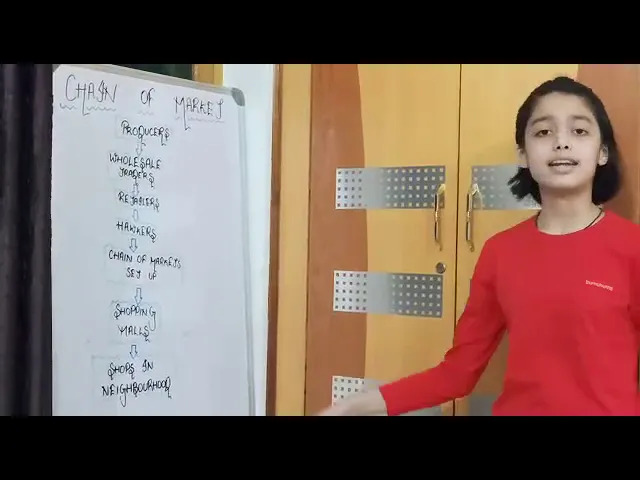 CHAIN OF MARKET
PRODUCERS
WHOLESALE
TRADERS
RETAILERS
HAWKERS
CHAIN OF MARKETS
SET UP
SHOPPING
MALLS
SHOPS IN
NEIGHBOURHOOD